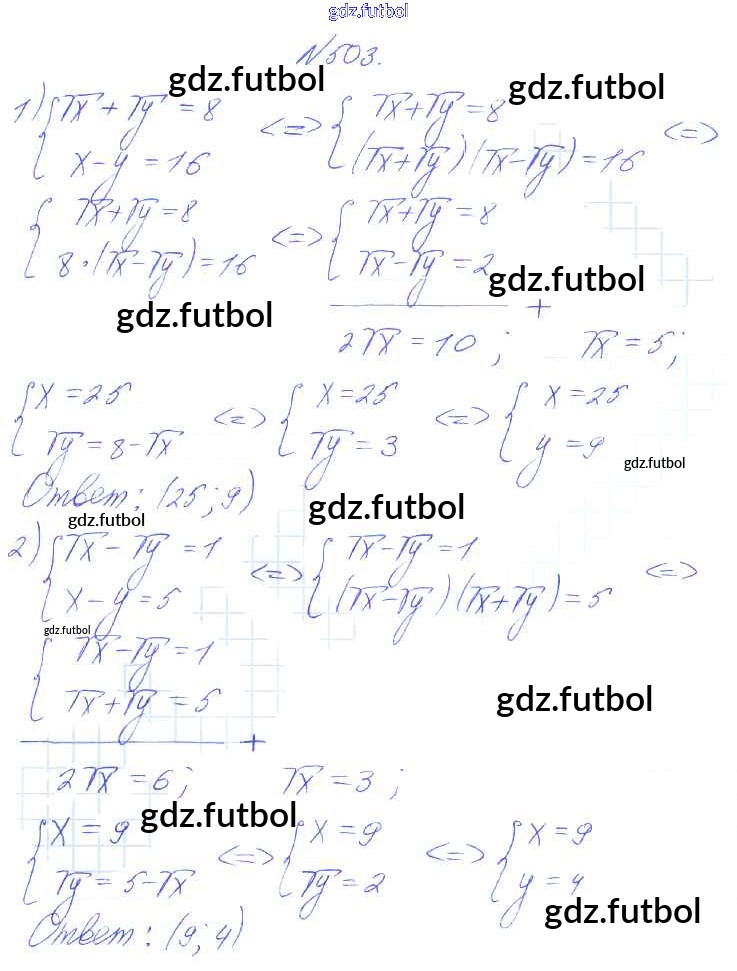 gdz.futbol
№503.
gdz.futbol gdz.futbol
1) {√x + √y = 8 <=> {√x+√y=8 <=>
x-y = 16 (√x+√y)(√x-√y)=16
{√x+√y=8 <=> {√x+√y=8
8·(√x-√y)=16 √x-√y=2
gdz.futbol
gdz.futbol +
2√x=10; √x=5;
{x=25 <=> {x=25 <=> {x=25
√y=8-√x √y=3 y=9
gdz.futbol
Ответ: (25; 9)
gdz.futbol gdz.futbol
2) {√x - √y = 1 <=> {√x-√y=1 <=>
x-y=5 (√x-√y)(√x+√y)=5
gdz.futbol
{√x-√y=1
√x+√y=5
gdz.futbol
+
2√x=6; √x=3;
gdz.futbol
{x=9 <=> {x=9 <=> {x=9
√y=5-√x √y=2 y=4
gdz.futbol
Ответ: (9; 4)